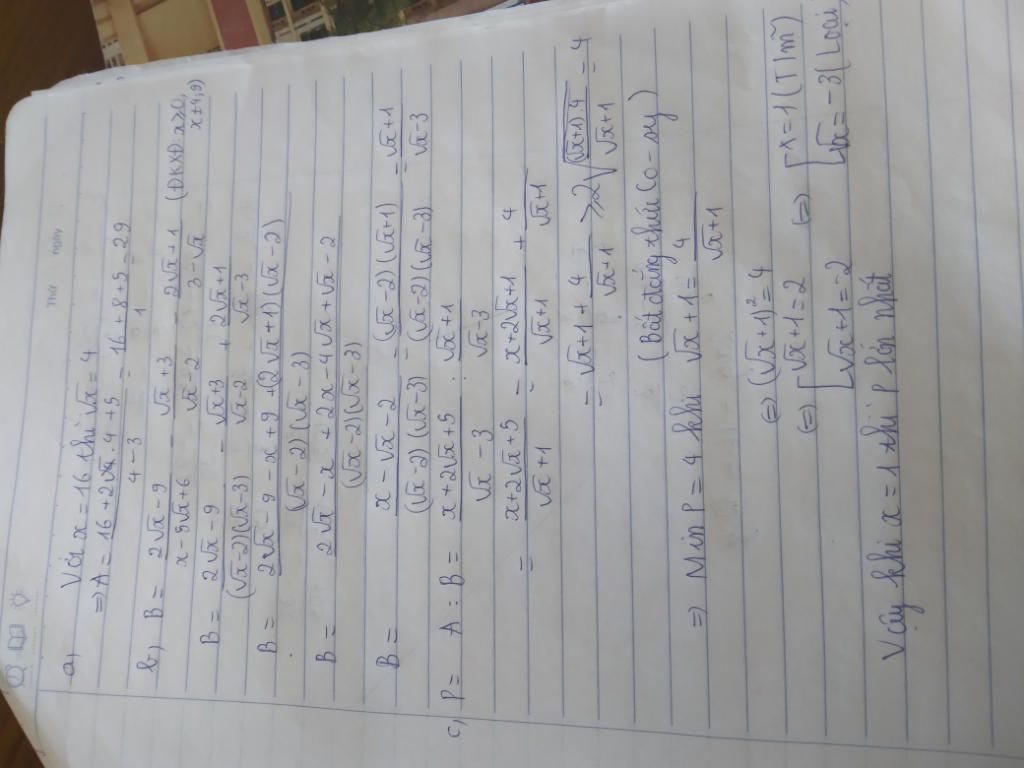 Thứ ngày
a) Với x = 16 thì √x = 4
=> A = (16 + 2√4.4 + 5)/(4 - 3) = (16 + 8 + 5)/1 = 29
b) B = (2√x - 9)/(x - 5√x + 6) - (√x + 3)/(√x - 2) - (2√x + 1)/(3 - √x) (ĐKXĐ: x ≥ 0, x ≠ 4, 9)
B = (2√x - 9)/((√x - 2)(√x - 3)) - (√x + 3)/(√x - 2) + (2√x + 1)/(√x - 3)
B = (2√x - 9 - x + 9 + (2√x + 1)(√x - 2))/((√x - 2)(√x - 3))
B = (2√x - x + 2x - 4√x + √x - 2)/((√x - 2)(√x - 3))
B = (x - √x - 2)/((√x - 2)(√x - 3)) = ((√x - 2)(√x + 1))/((√x - 2)(√x - 3)) = (√x + 1)/(√x - 3)
c) P = A : B = (x + 2√x + 5)/(√x - 3) : (√x + 1)/(√x - 3)
= (x + 2√x + 5)/(√x + 1) = (x + 2√x + 1)/(√x + 1) + 4/(√x + 1)
= √x + 1 + 4/(√x - 1) ≥ 2√(((√x + 1).4)/(√x + 1)) = 4
(Bất đẳng thức Co-sy)
=> Min P = 4 khi √x + 1 = 4/(√x + 1)
<=> (√x + 1)² = 4
<=> [ √x + 1 = 2 <=> [ x = 1 (T/m)
√x + 1 = -2 √x = -3 (Loại)
Vậy khi x = 1 thì P lớn nhất